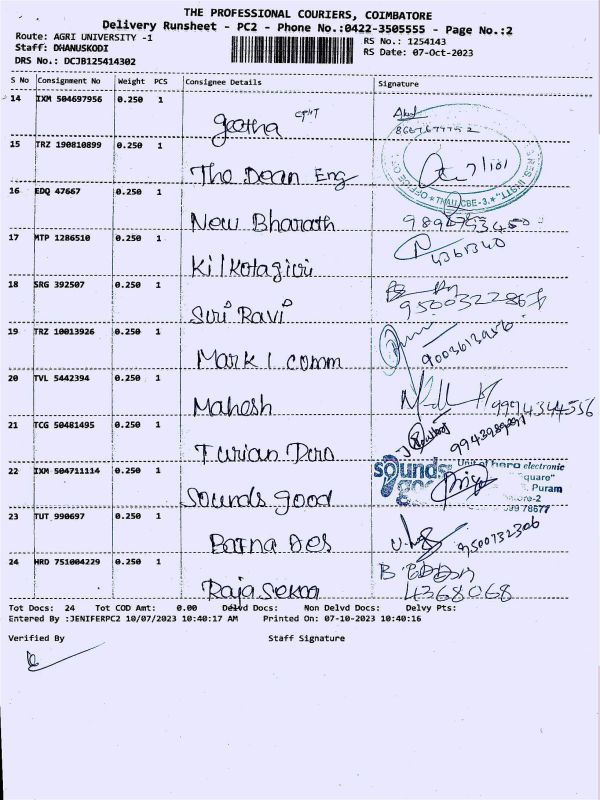 THE PROFESSIONAL COURIERS, COIMBATORE
Delivery Runsheet - PC2 - Phone No.:0422-3505555 - Page No.:2
Route: AGRI UNIVERSITY -1
RS No.: 1254143
Staff: DHANUSKODI
RS Date: 07-Oct-2023
DRS No.: DCJB125414302
S No Consignment No Weight PCS Consignee Details Signature
14 IXM 504697956 0.250 1
geetha
15 TRZ 190810899 0.250 1
The Dean Eng
16 EDQ 47667 0.250 1
New Bharath
17 MTP 1286510 0.250 1
Kilkotagiri 4361340
18 SRG 392507 0.250 1
Siri Ravi
19 TRZ 10013926 0.250 1
Mark 1 comm
20 TVL 5442394 0.250 1
Mahesh 9994344556
21 TCG 50481495 0.250 1
Turian
22 IXM 504711114 0.250 1
Sounds good
sounds good
Unit of hero electronic
Square"
Puram
23 TUT 990697 0.250 1
9500732306
24 HRD 751004229 0.250 1
4368068
Tot Docs: 24 Tot COD Amt: 0.00 Delvd Docs: Non Delvd Docs: Delvy Pts:
Entered By :JENIFERPC2 10/07/2023 10:40:17 AM Printed On: 07-10-2023 10:40:16
Verified By Staff Signature